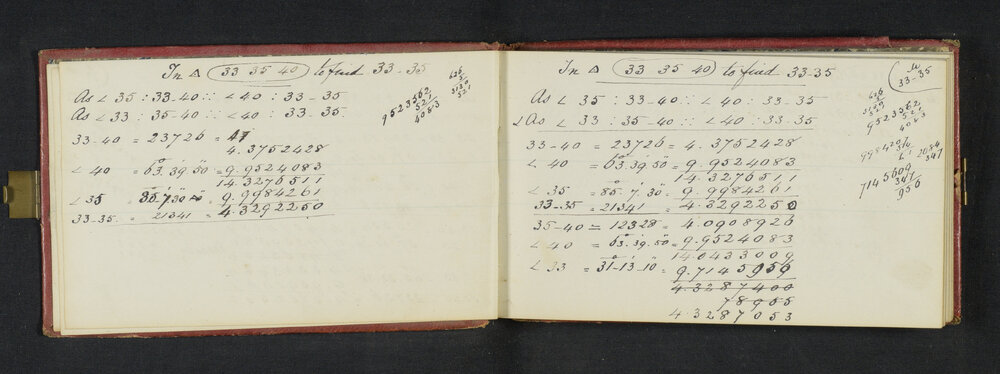 In Δ 33 35 40 to find 33-35
As ∠ 35 : 33-40 :: ∠ 40 : 33-35
As ∠ 33 : 35-40 :: ∠ 40 : 33-35.
33-40 = 23726 =
4.3752428
∠ 40 = 63°.39'.50" = 9.9524083
14.3276511
∠ 35 = 85.7.30 = 9.9984261
33-35. = 21341 = 4.3292250
626
5
3130
521
9523562
521
4083
In Δ 33 35 40 to find 33-35
As ∠ 35 : 33-40 :: ∠ 40 : 33-35
∠ As ∠ 33 : 35-40 :: ∠ 40 : 33-35
33-40 = 23726 = 4.3752428
∠ 40 = 63°.39'.50" = 9.9524083
14.3276511
∠ 35 = 85°.7'.30" = 9.9984261
33-35 = 21341 = 4.3292250
35-40 = 12328 = 4.0908926
∠ 40 = 63°.39'.50" = 9.9524083
14.0433009
∠ 33 = 31°-13'-10" = 9.7145959
4.3287400
4.3287053
33-35
626
5
9523562
521
4083
7145609
347
956
2084
347